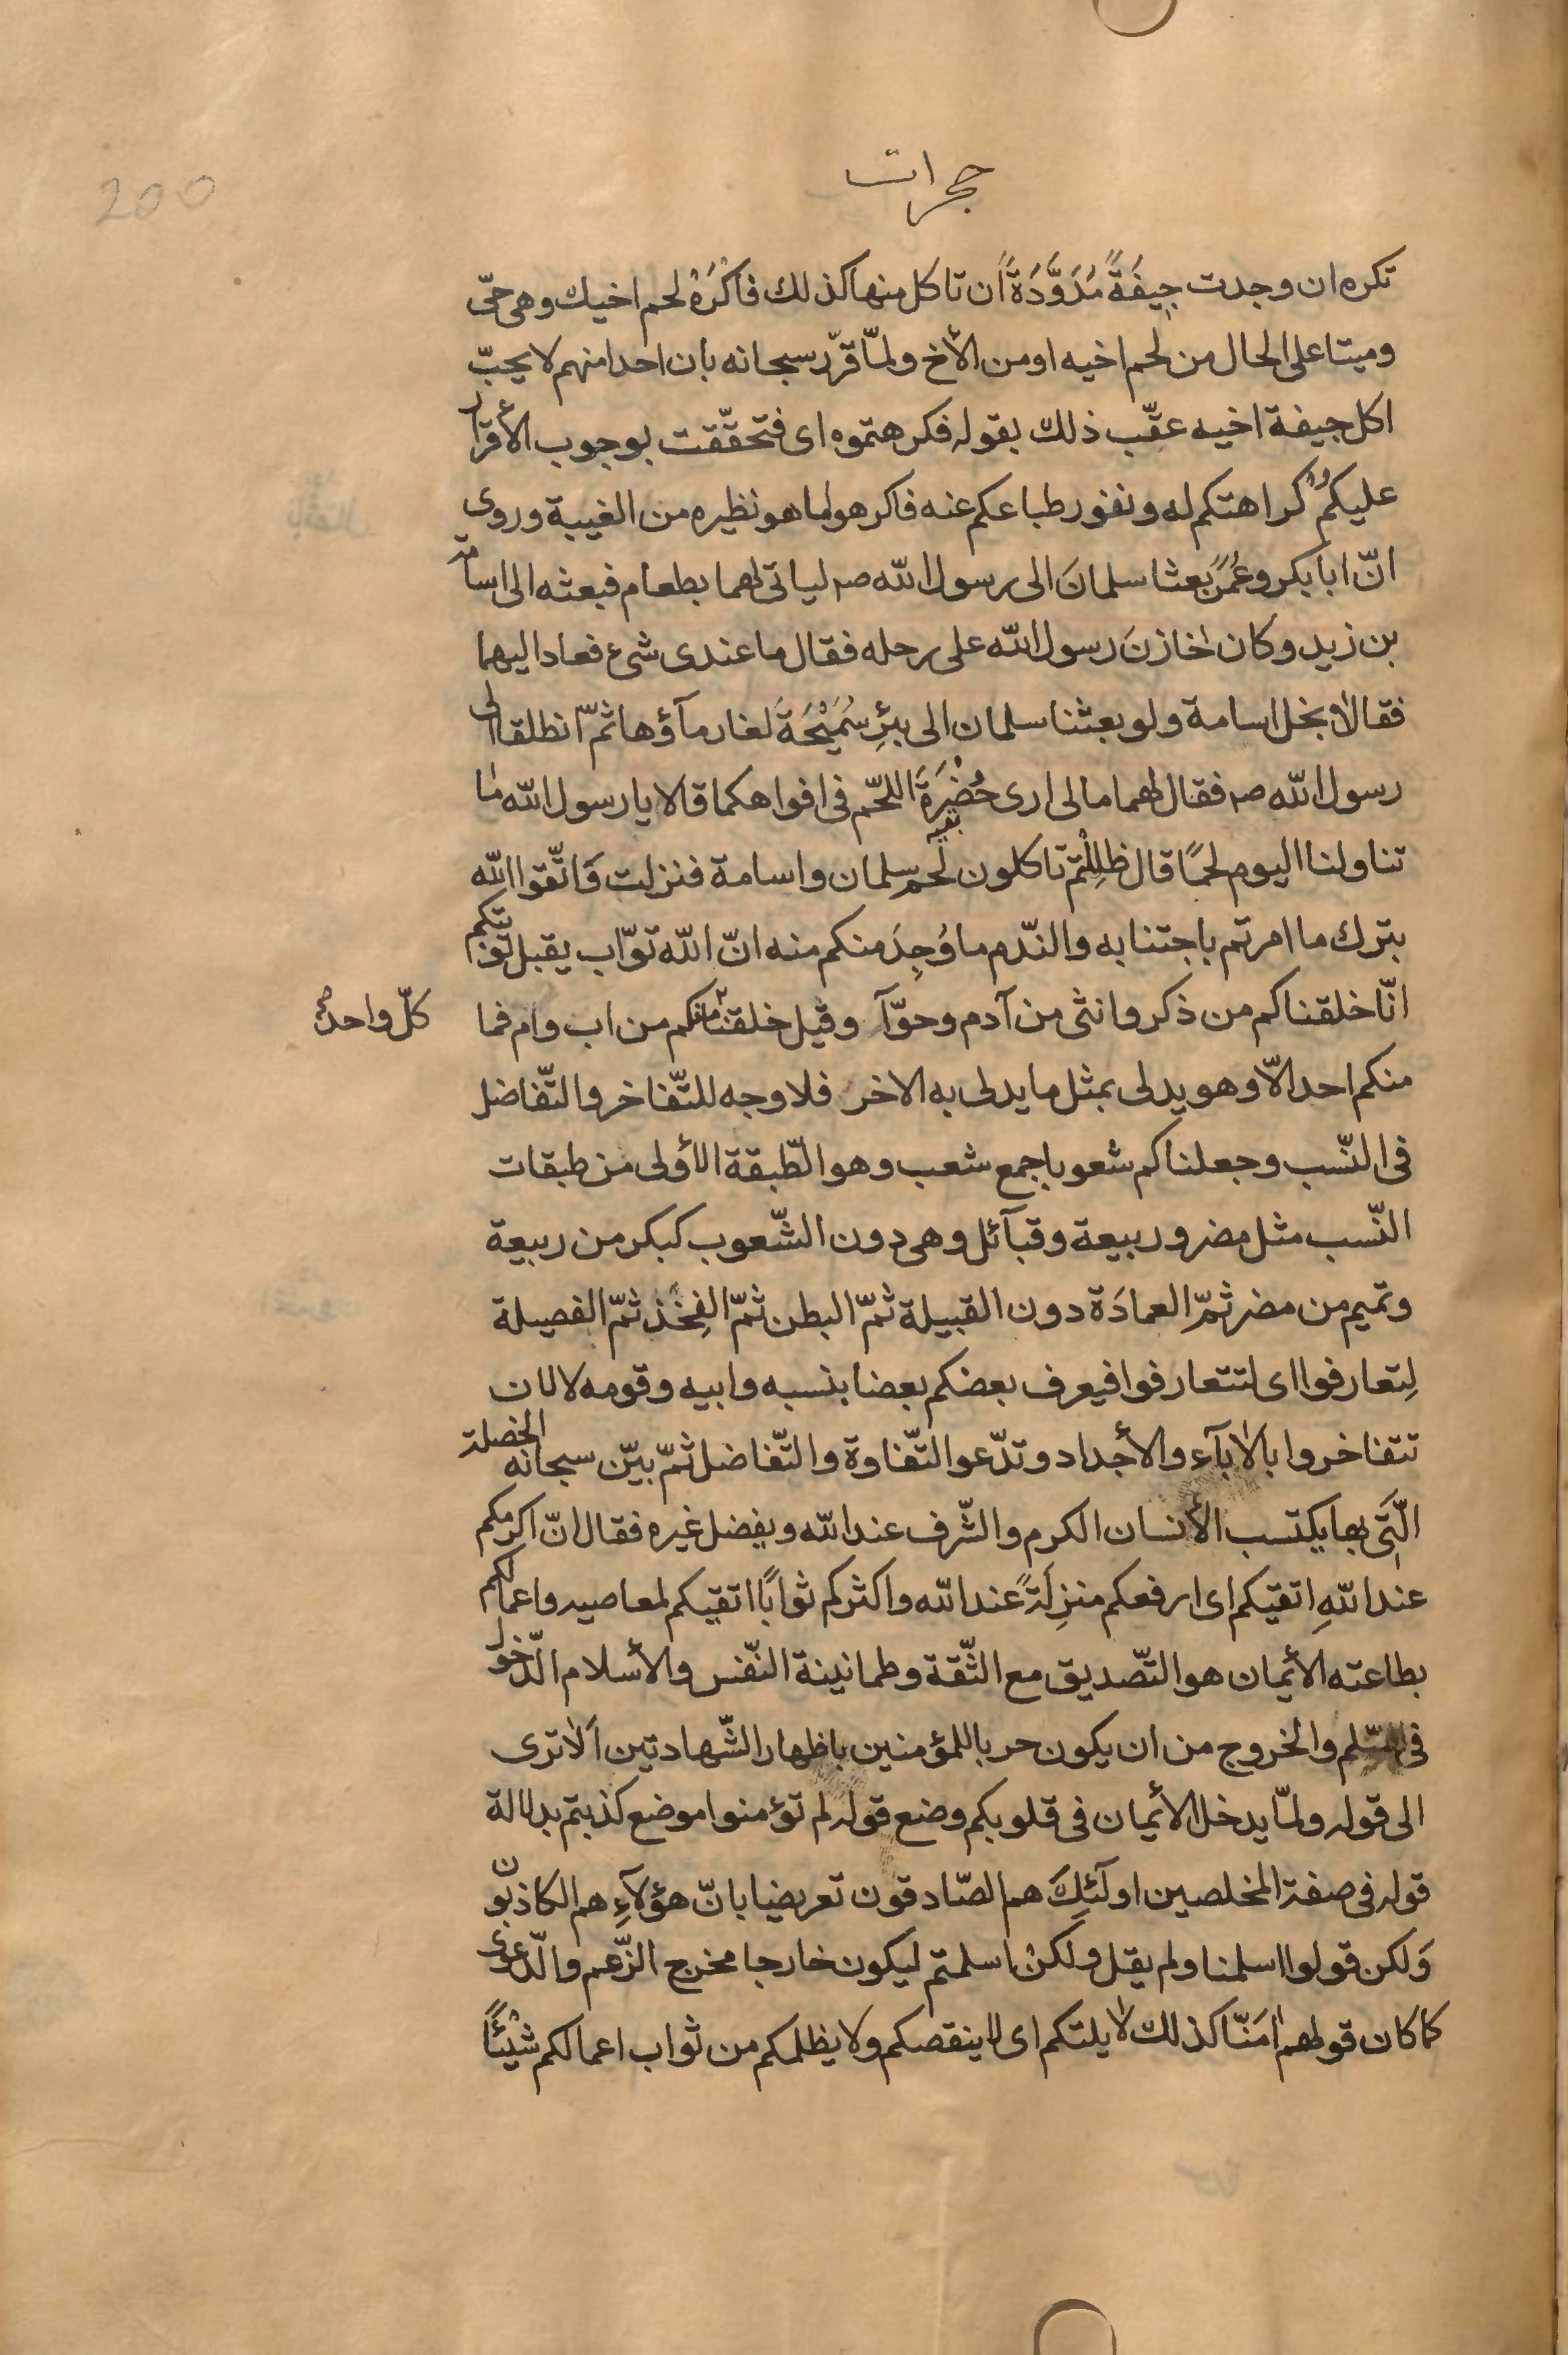 200
حجرات
تكره ان وجدت جِيفَةً مُدَوَّدَةً اَن تاكل منها كذلك فَاكْرَهْ لحم اخيك وهى حىّ
وميتا على الحال من لحم اخيه او من الأخ ولمّا قرّر سبحانه بان احدا منهم لا يحبّ
اكل جيفة اخيه عقّب ذلك بقوله فكرهتموه اى فتحقّقت بوجوب الأقرار
عليكم كراهتكم له ونفور طباعكم عنه فاكرهوا ما هو نظيره من الغيبة وروى
انّ ابا بكر وعُمَر بعثا سلمانَ الى رسول الله صم لياتى لهما بطعام فبعثه الى اسامة
بن زيد وكان خازنَ رسول الله على رحله فقال ما عندى شىء فعاد اليهما
فقالا بخل اسامة ولو بعثنا سلمان الى بئرِ سُمَيْحَةَ لغار مآؤها ثمّ انطلقا الى
رسول الله صم فقال لهما ما لى ارى خُضْرَةَ اللحّم فى افواهكما قالا يا رسول الله ما
تناولنا اليوم لحمًا قال ظِلِلْتم تاكلون لحم سلمان واسامة فنزلت وَاتّقوا الله
بترك ما امرتم باجتنابه والنّدم ما وُجِدَ منكم منه انّ الله توّاب يقبل توبتكم
انّا خلقناكم من ذكر وانثى من آدم وحوّآ وقيل خلقنا منكم من اب وام فما
كلّ واحد
منكم احد الّا وهو يدلى بمثل ما يدلى به الاخر فلا وجه للتّفاخر والتّفاضل
فى النّسب وجعلناكم شعوبا جمع شعب وهو الطّبقة الأولى من طبقات
النّسب مثل مضر وربيعة وقبآئل وهى دون الشّعوب كبكر من ربيعة
وتميم من مضر ثمّ العمادَة دون القبيلة ثمّ البطن ثمّ الفِخَذ ثمّ الفصيلة
لِتعارفوا اى لتتعارفوا فيعرف بعضكم بعضا بنسبه وابيه وقومه لا لان
تتفاخروا بالاٰبآء والأجداد وتدّعوا التّفاوة والتّفاضل ثمّ بيّن سبحانه الخصلة
الّتى بها يكتسب الأنسان الكرم والشّرف عند الله ويفضل غيره فقال انّ اكرمكم
عند اللهِ اتقيكم اى ارفعكم منزِلَةً عند الله واكثركم ثوابًا اتقيكم لمعاصيه واعمالكم
بطاعته الأيمان هو التّصديق مع الثّقة وطمانينة النّفس والأسلام الدّخول
فى السّلم والخروج من ان يكون حربا للمؤمنين باظهار الشّهادتين اَلا ترى
الى قوله ولمّا يدخل الأيمان فى قلوبكم وضع قوله لم تؤمنوا موضع كذبتم بدلالة
قوله فى صفة المخلصين اولٓئِكَ هم الصّادقون تعريضا بانّ هؤلآءِ هم الكاذبون
وَلكن قولوا اسلمنا ولم يقل ولكنْ اسلمتم ليكون خارجا مخرج الزّعم والدّعوى
كما كان قولهم اٰمَنّا كذلك لا يلتكم اى لا ينقصكم ولا يظلمكم من ثواب اعمالكم شَيْئًا